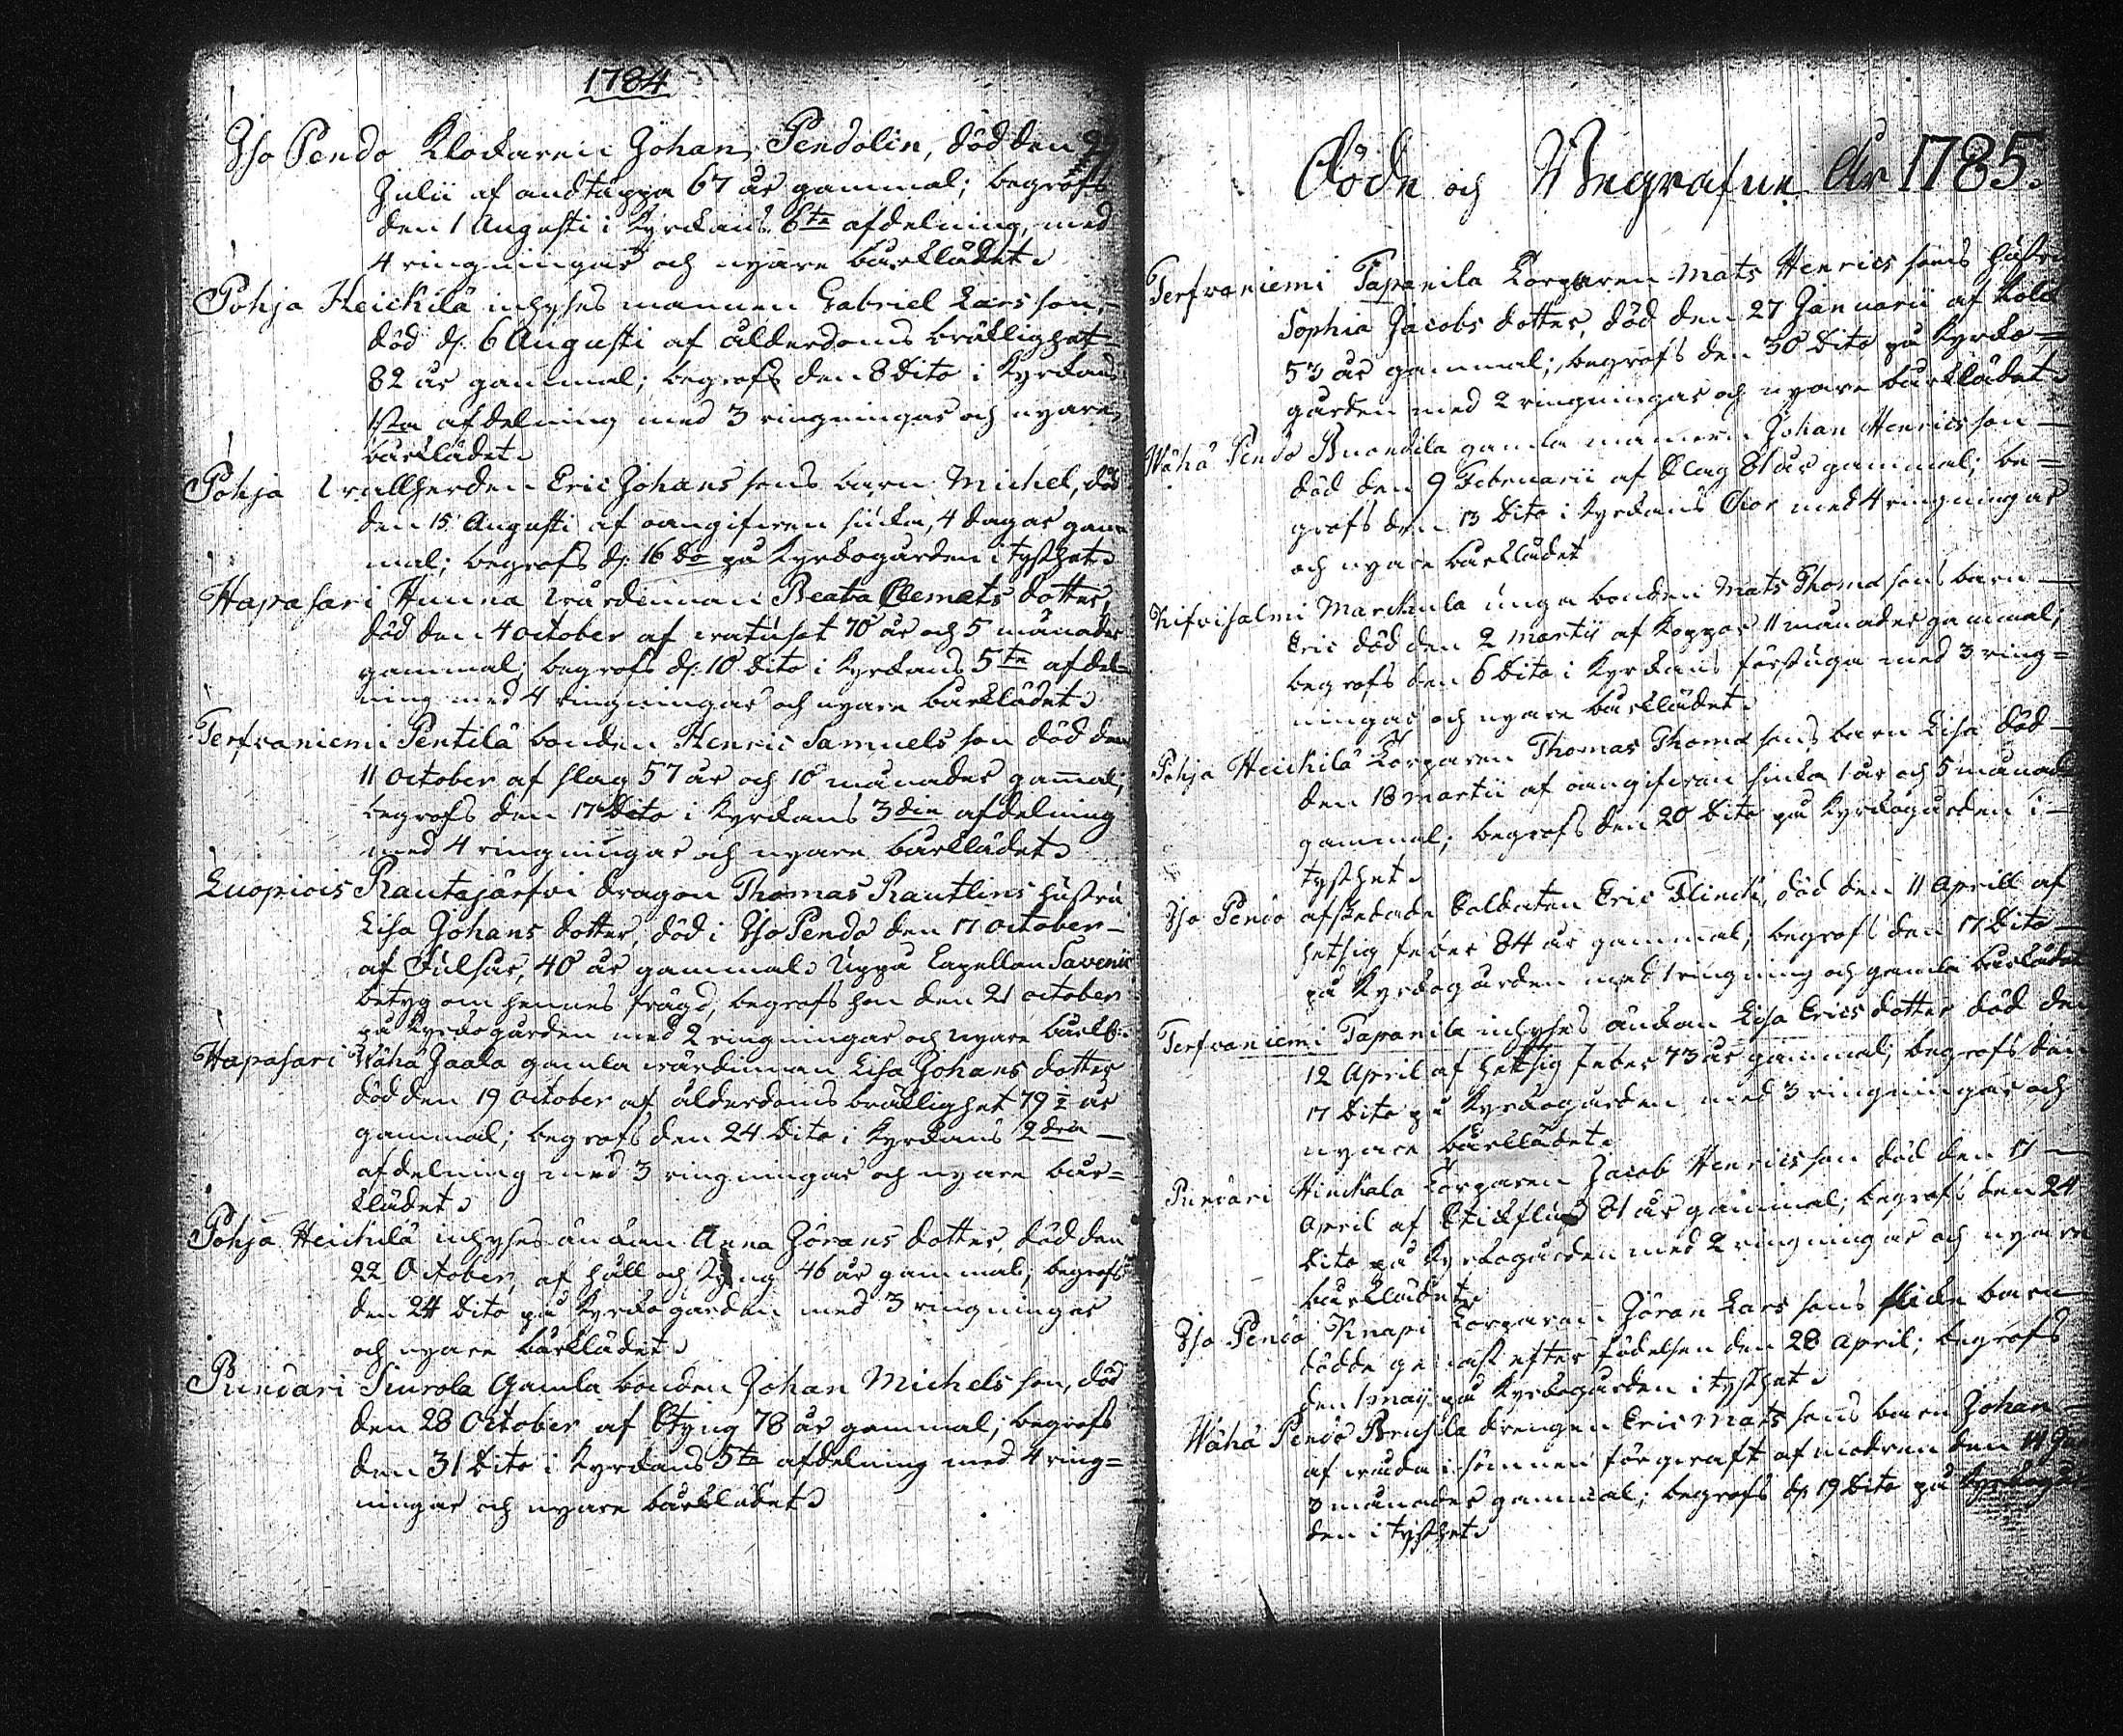 1784
Iso Pendo Klockaren Johan Pendolin, död den
Julii af andtäppa 67 år gammal; begrofs
den 1 Augusti i Kyrckans 6te afdelning, med
4 ringningar och nyare bårklädet.
Pohja Heickilä inhyses mannen Gabriel Larsson,
död d. 6 Augusti af ålderdoms bräklighet
82 år gammal; begrofs den 8 Dito i Kyrckans
1sta afdelning med 3 ringningar och nyare
bårklädet.
Pohja Wallherden Eric Johans sons barn Michel, död
den 15 Augusti af oangifven siuka, 4 dagar gam
mal; begrofs d. 16 Do på Kyrckogården i tysthet.
Hapasari Hunna Wärdinnan Beata Clemets dotter,
död den 4 October af watusot 70 år och 5 månader
gammal; begrofs d. 10 Dito i Kyrckans 5te afdel=
ning med 4 ringningar och nyare bårklädet.
Terfvaniemi Pentilä bonden Henric Samuels son död den
11 October af slag 57 år och 10 månader gamal;
begrofs den 17 Dito i Kyrckans 3die afdelning
med 4 ringningar och nyare bårklädet.
Luopiois Rautajärfvi Dragon Thomas Rautlins hustru
Lisa Johans dotter, död i Iso Pendo den 17 October
af 40 år gammal. Uppå Capellan Savenii
betyg om hennes frägd, begrofs hon den 21 October
på Kyrckogården med 2 ringningar och nyare bårkl:
Hapasari Wähä Jaala gamla wärdinnan Lisa Johans dotter
död den 19 October af ålderdoms bräklighet 79 1/2 år
gammal; begrofs den 24 Dito i Kyrckans 2dra
afdelning med 3 ringningar och nyare bår=
klädet.
Pohja Heickilä inhyses änkan Anna Jörans dotter, död den
22 October, af håll och styng 46 år gammal; begrofs
den 24 Dito på Kyrckogården med 3 ringningar
och nyare bårklädet.
Puncari Simola Gamla bonden Johan Michels son, död
den 28 October af Styng 78 år gammal; begrofs
den 31 Dito i Kyrckans 5te afdelning med 4 ring=
ningar och nyare bårklädet.
Döde och Begrafne År 1785.
Terfvaniemi Tapanila Torparen Mats Henrics sons hustru
Sophia Jacobs dotter, död den 27 Januarii af
53 år gammal; begrofs den 30 Dito på Kyrcko=
gården med 2 ringningar och nyare bårklädet.
Wähä Pendo gamla mannen Johan Henricsson
död den 9 Februarii af Slag 81 år gammal; be=
grofs den 13 Dito i Kyrckans Chor med 4 ringningar
och nyare bårklädet
Marckula unga bonden Mats Thomas sons barn
Eric död den 2 Martii af Koppor 11 månader gammal;
begrofs den 6 Dito i Kyrckans förstuga med 3 ring=
ningar och nyare bårklädet.
Pohja Heickilä Torparen Thomas Thomas sons barn Lisa död
den 18 Martii af oangifven siuka 1 år och 5 månad
gammal; begrofs den 20 Dito på Kyrckogården i
tysthet.
Iso Pendo afskedade Soldaten Eric Flinck, död den 11 Aprill af
hetsig feber 84 år gammal; begrofs den 17 Dito
på Kyrckogården med 1 ringning och gamla bårklädet
Terfvaniemi Tapanila inhyses änkan Lisa Erics dotter död den
12 April af hettsig feber 73 år gammal; begrofs den
17 Dito på Kyrckogården med 3 ringningar och
nyare bårklädet.
Puncari Hinckala Torparen Jacob Henricsson död den 17
April af Stickfluss 81 år gammal; begrofs den 24
Dito på Kyrckogården med 2 ringningar och nyare
bårklädet.
Iso Pendo Knapi Torparen Jöran Lars sons flicke barn
dödde genast efter födelsen den 28 April; begrofs
den 1 Maij på Kyrckogården i tysthet.
Wähä Pendo Brusila drengen Eric Mats sons barn Johan
af wåda i sömnen förqwaft af modren den 14
3 månader gammal; begrofs d. 19 Dito på Kyrckogår
den i tysthet.